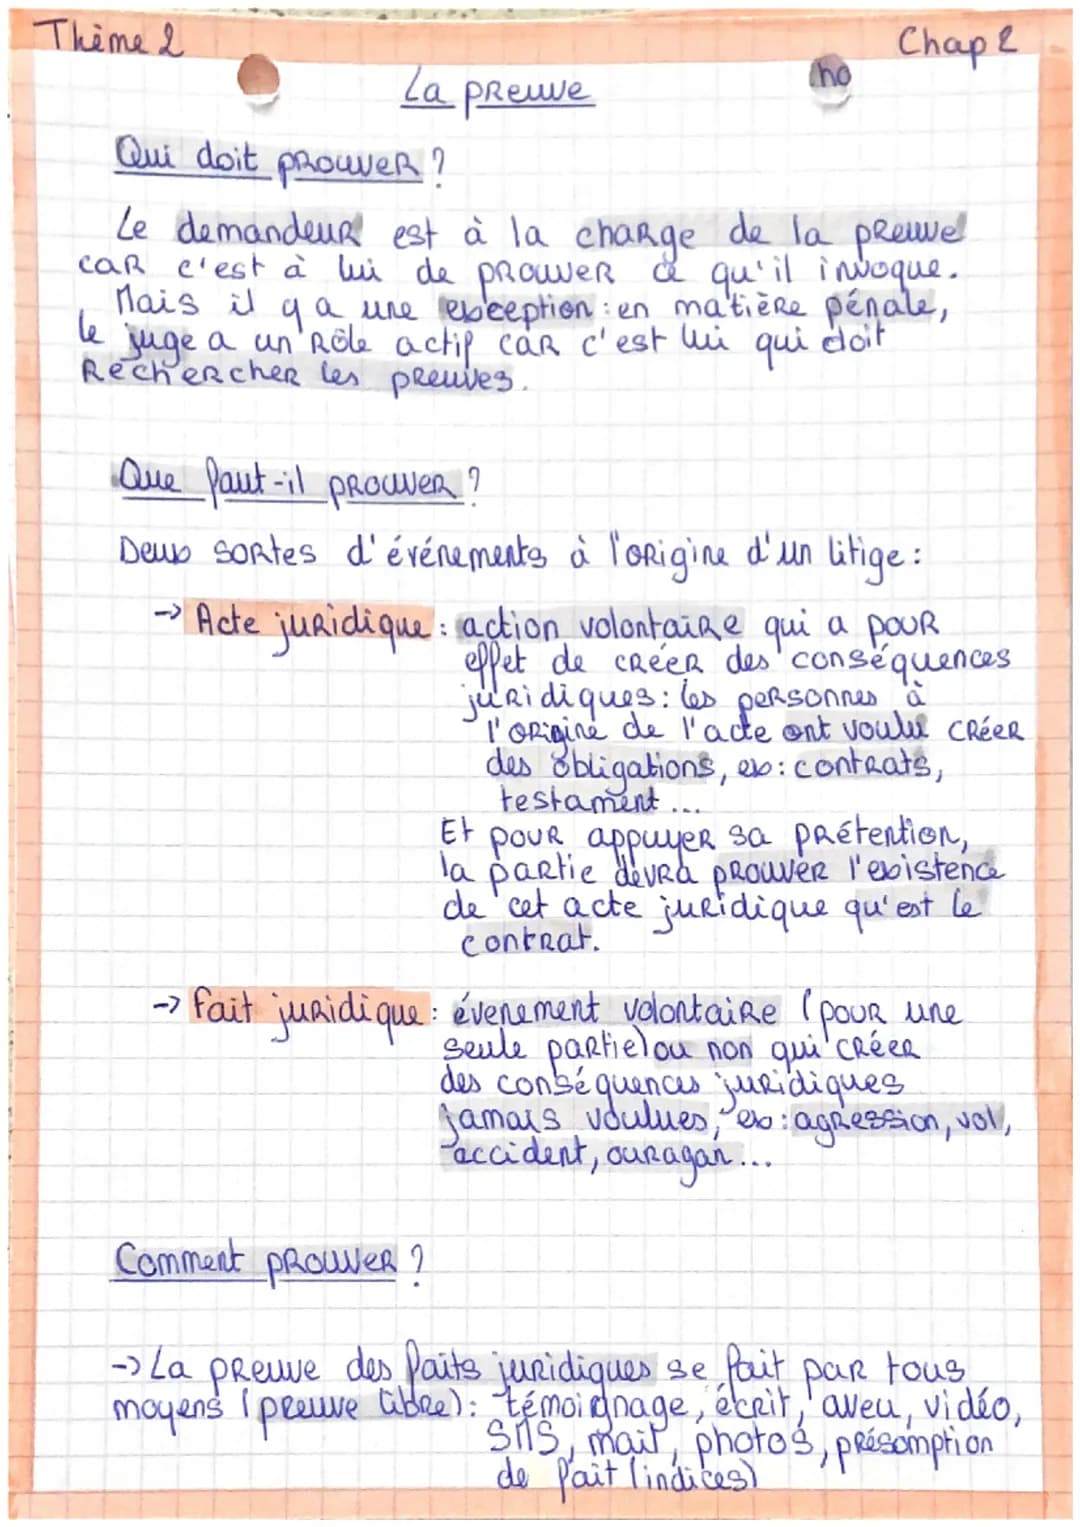 Thème 2
Chap 2
ho
La preuve
Qui doit prouver ?
Le demandeur est à la charge de la preuve
car c'est à lui de prouver ce qu'il invoque.
Mais il y a une exception : en matière pénale,
le juge a un rôle actif car c'est lui qui doit
Rechercher les preuves.
Que faut-il prouver ?
Deux sortes d'événements à l'origine d'un litige :
-> Acte juridique : action volontaire qui a pour
effet de créer des conséquences
juridiques : les personnes à
l'origine de l'acte ont voulu créer
des obligations, ex : contrats,
testament ...
Et pour appuyer sa prétention,
la partie devra prouver l'existence
de cet acte juridique qu'est le
contrat.
-> Fait juridique : évenement volontaire (pour une
seule partie) ou non qui créer
des conséquences juridiques
jamais voulues, ex : agression, vol,
accident, ouragan ...
Comment prouver ?
-> La preuve des faits juridiques se fait par tous
moyens (preuve libre) : témoignage, écrit, aveu, vidéo,
SMS, mail, photos, présomption
de fait (indices)